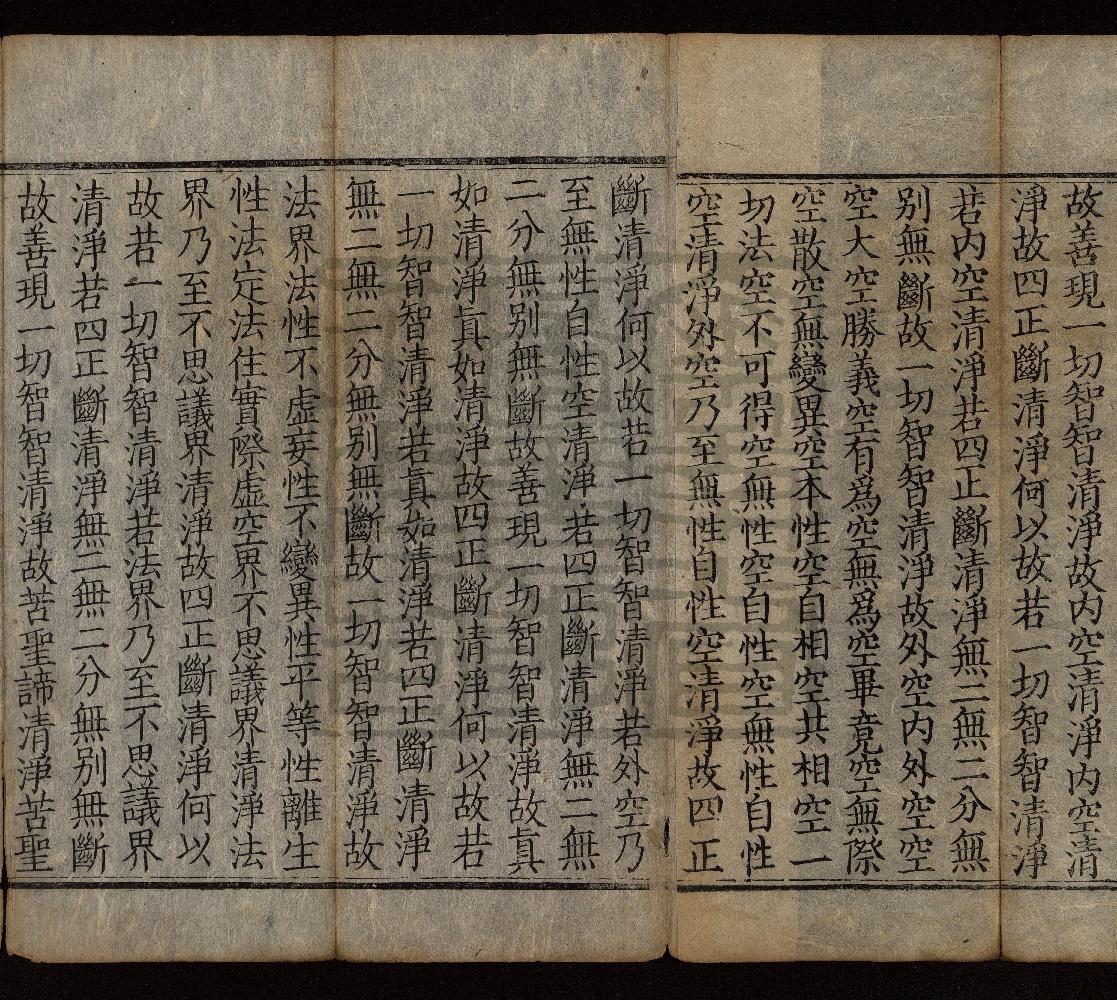 故善現一切智智清淨故内空清淨内空清
淨故四正斷清淨何以故若一切智智清淨
若内空清淨若四正斷清淨無二無二分無
别無斷故一切智智清淨故外空内外空空
空大空勝義空有爲空無爲空畢竟空無際
空散空無變異空本性空自相空共相空一
切法空不可得空無性空自性空無性自性
空清淨外空乃至無性自性空清淨故四正
斷清淨何以故若一切智智清淨若外空乃
至無性自性空清淨若四正斷清淨無二無
二分無别無斷故善現一切智智清淨故眞
如清淨眞如清淨故四正斷清淨何以故若
一切智智清淨若眞如清淨若四正斷清淨
無二無二分無别無斷故一切智智清淨故
法界法性不虛妄性不變異性平等性離生
性法定法住實際虛空界不思議界清淨法
界乃至不思議界清淨故四正斷清淨何以
故若一切智智清淨若法界乃至不思議界
清淨若四正斷清淨無二無二分無别無斷
故善現一切智智清淨故苦聖諦清淨苦聖